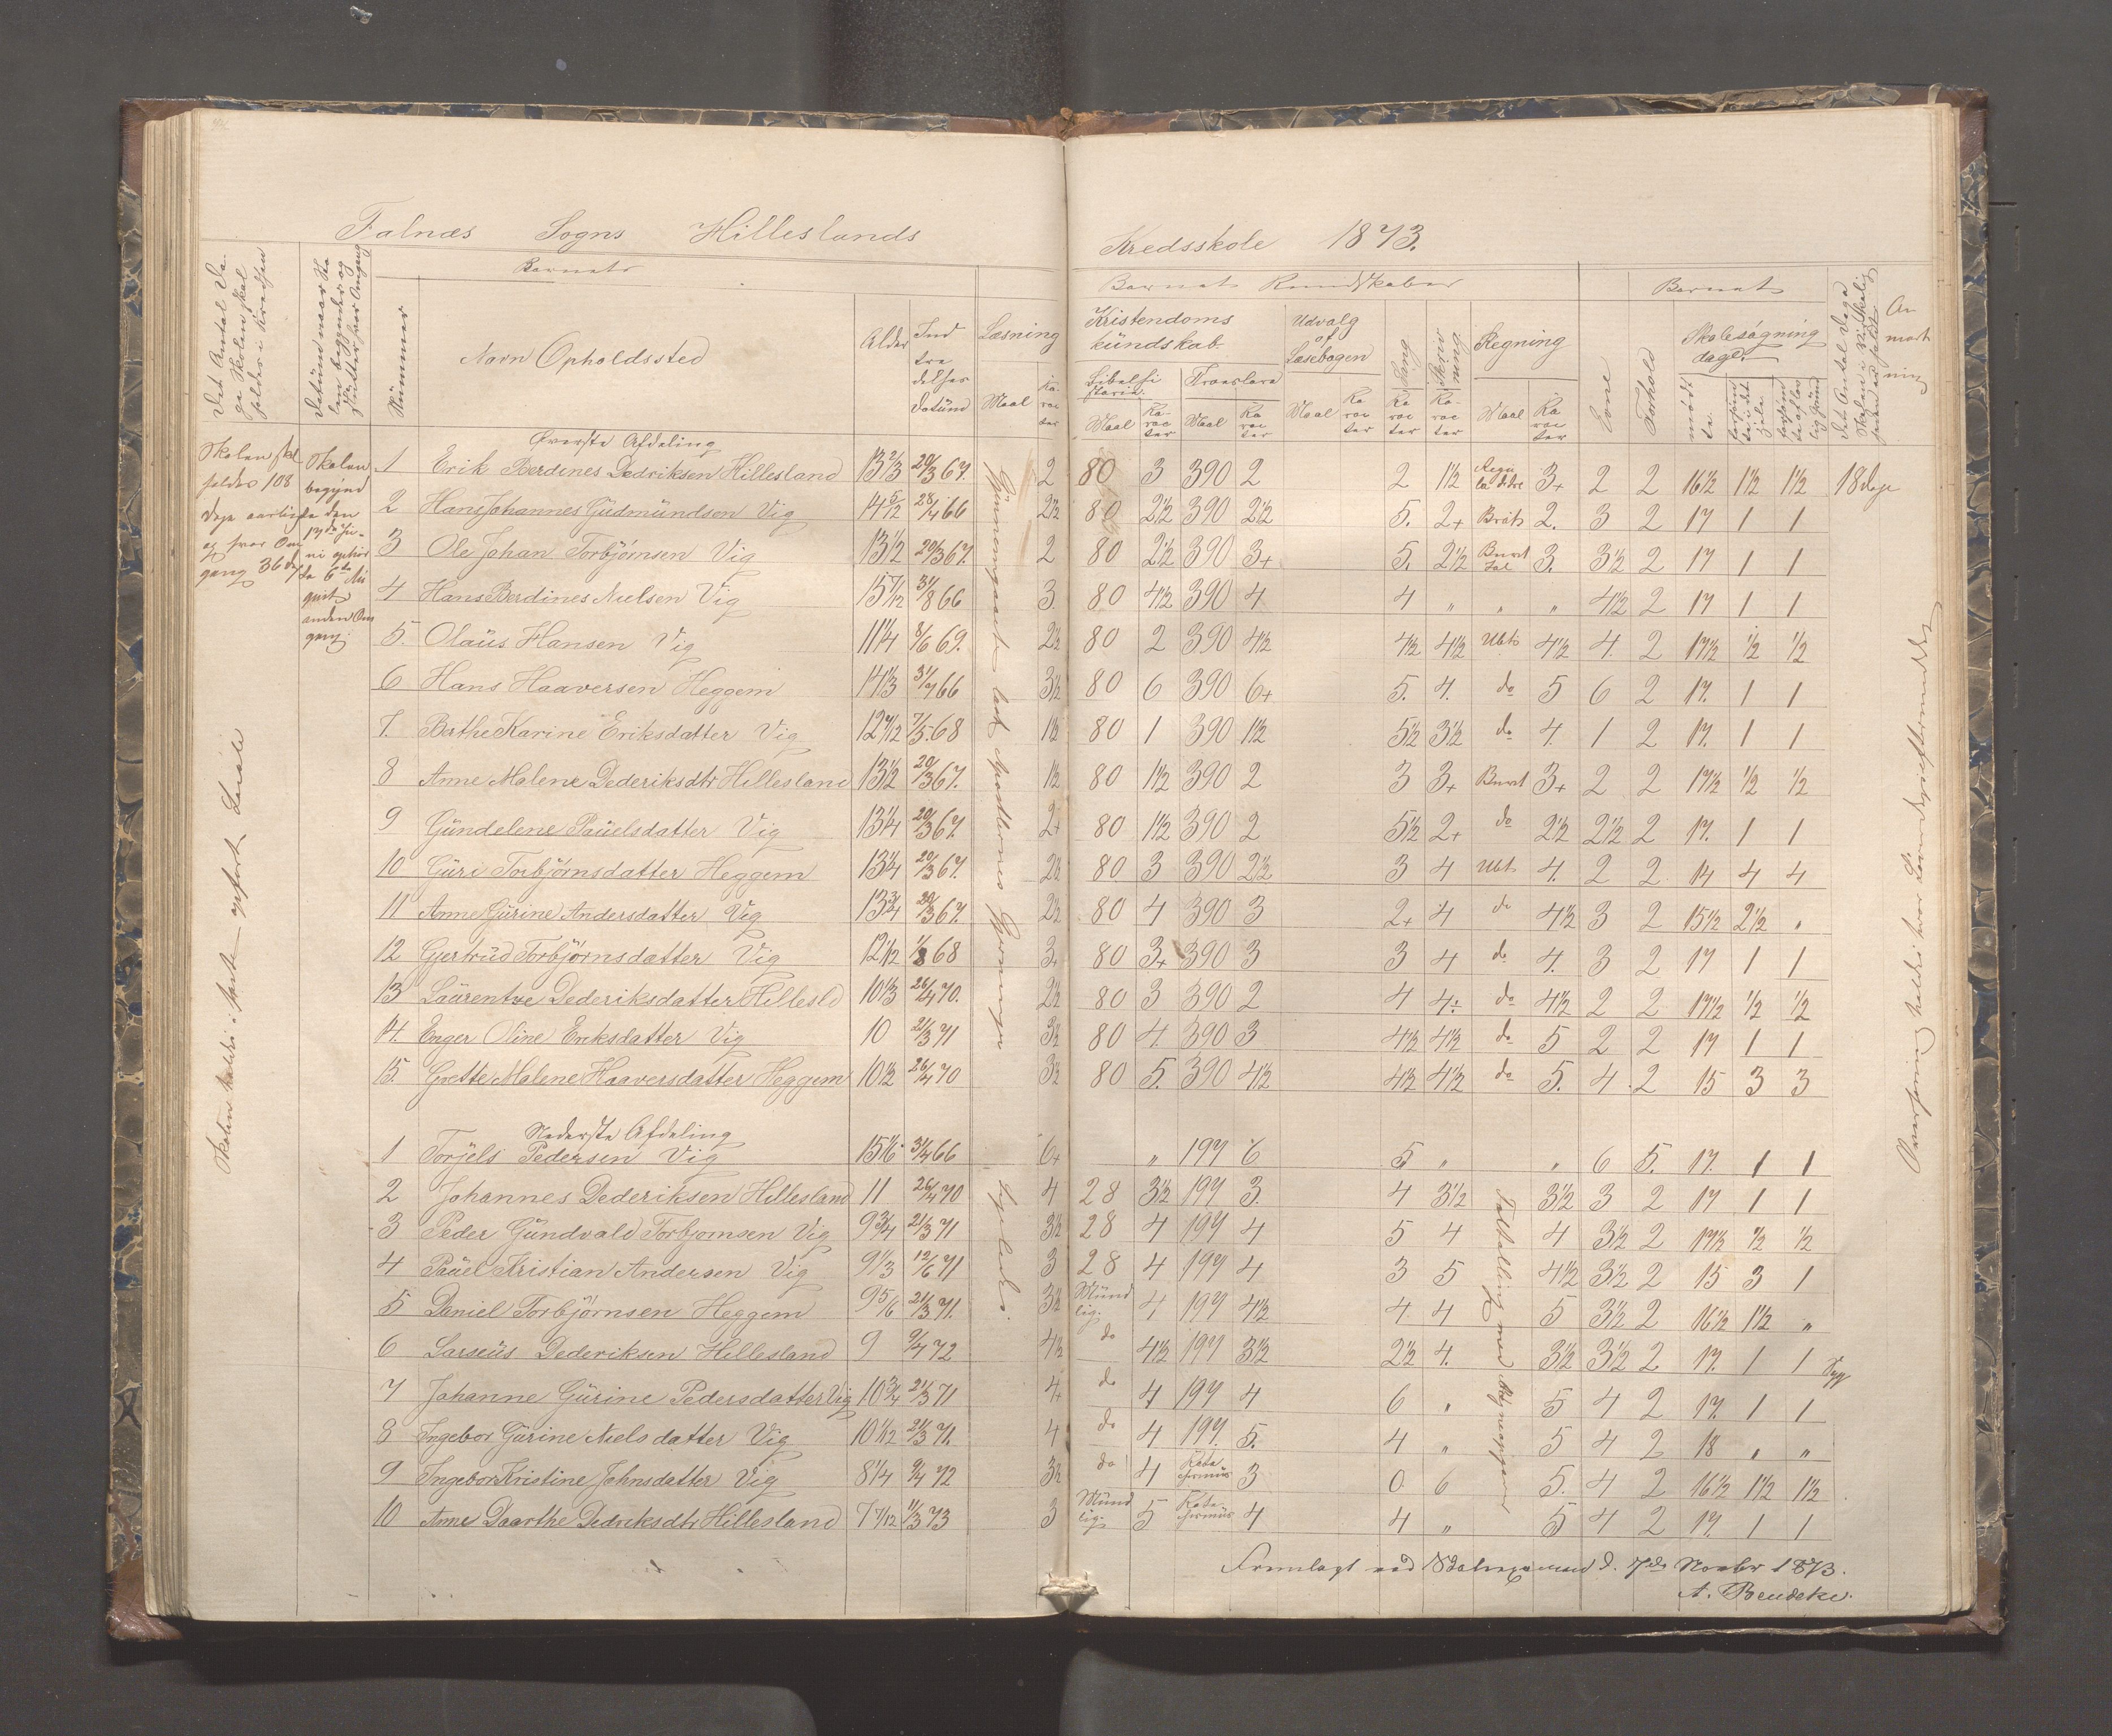 Falnæs Sogns Hilleslands Kredsskole 1873.
Det Antal Dage Skolen skal holdes i Kredsen
Datum naar Skolen begynder og slutter hver Omgang
Nummer
Barnets
Navn Opholdssted
Alder
Indtrædelses datum
Læsning
Maal
Karacter
Barnets Kundskaber
Kristendoms kundskab
Bibelhistorie
Maal
Karacter
Troeslære
Maal
Karacter
Udvalg af Læsebogen
Maal
Karacter
Sang
Karacter
Skrivning
Karacter
Regning
Maal
Karacter
Evne
Forhold
Barnets
Skolesøgning dage
mødt
forsømte i det hele
forsømte af lovlig Grund
Det Antal Dage Skolen i Virkelig heden er holdt
Anmærkning
Skolen skal holdes 108 Dage aarlig og hver Omgang 36 Dage
Skolen begyndte den 17de Juni ophørte 6te August anden Omgang.
Øverste Afdeling
1 Erik Berdines Dedriksen Hillesland 13 2/3 20/3 67. 2 80 3 390 2 2 1½ Regula de tre 3+ 2 2 16½ 1½ 1½ 18 dage
2 Hans Johannes Gudmundsen Vig 14 5/12 28/4 66 2½ 80 2½ 390 2½ 5. 2+ Brøk 2. 3 2 17 1 1
3 Ole Johan Torbjørnsen Vig 13½ 20/3 67. 2 80 2½ 390 3+ 5. 2½ 3. 3½ 2 17 1 1
4 Hans Berdines Nielsen Vig 15 7/12 31/8 66 3 80 4½ 390 4 4 „ „ „ 4½ 2 17 1 1
5. Olaüs Hansen Vig 11¼ 8/6 69. 2½ 80 2 390 4½ 4½ 4½ Ubt. 4½ 4. 2 17½ ½ ½
6 Hans Haaversen Heggem 14⅓ 31/7 66 3½ 80 6 390 6+ 5. 4. do 5 6 2 17. 1 1
7. Berthe Karine Eriksdatter Vig 12 7/12 7/5 68 1½ 80 1 390 1½ 5½ 3½ do 4. 1 2 17. 1 1
8 Anne Malene Dederiksdtr Hillesland 13½ 20/3 67. 1½ 80 1½ 390 2 3 3+ 3+ 2 2 17½ ½ ½
9 Gündelene Pauelsdatter Vig 13¼ 20/3 67. 2+ 80 1½ 390 2 5½ 2+ do 2½ 2½ 2 17. 1 1
10 Güri Torbjørnsdatter Heggem 13¼ 20/3 67. 2½ 80 3 390 2½ 3 4 Ubt. 4. 2 2 14 4 4
11 Anne Gürine Andersdatter Vig 13¾ 20/3 67. 2½ 80 4 390 3 2+ 4 do 4½ 3 2 15½ 2½ „
12 Gjertrüd Torbjørnsdatter Vig 12 1/12 1/8 68 3+ 80 3+ 390 3 3 4 do 4. 3 2 17 1 1
13 Laurentze Dederiksdatter Hillesld 10⅓ 26/4 70. 2½ 80 3 390 2 4 4+ do 4½ 2 2 17½ ½ ½
14. Enger Oline Eriksdatter Vig 10 21/3 71 3½ 80 4. 390 3 4½ 4½ do 5 2 2 17 1 1
15. Grette Malene Haaversdatter Heggem 10½ 26/4 70 3½ 80 5. 390 4½ 4½ 4½ do 5. 4. 2 15 3 3
Nederste Afdeling
1 Torjels Pedersen Vig 15⅙ 31/7 66 6+ „ 197 6 5 „ „ 6 5. 17. 1 1
2 Johannes Dederiksen Hillesland 11 26/4 70 4 28 3½ 197 3. 4 3½ 3½ 3 2 17 1 1
3 Peder Gündvald Torbjornsen Vig 9¾ 21/3 71 3½ 28 4 197 4 5 4 4 3½ 2 17½ ½ ½
4 Pauel Kristian Andersen Vig 9⅓ 12/6 71 3 28 4 197 4 3 5 4½ 3½ 2 15 3 1
5 Daniel Torbjørnsen Heggem 9 5/6 21/3 71. 3½ Mündlig. 4 197 4½ 4. 4 5 3½ 2 16½ 1½ „
6 Larseüs Dederiksen Hillesland 9 9/4 72 4½ do 4½ 197 3½ 2½ 4. 3½ 3½ 2 17. 1 1 Syg
7 Johanne Gürine Pedersdatter Vig 10¾ 21/3 71 4+ do 4 197 4 6 „ 5 4 2 17. 1 1
8 Ingebor Gürine Niels datter Vig 10 1/12 21/3 71. 4 do 4 197. 5. 4 „ 5 4 2 18 „ „
9 Ingebor Kristine Johnsdatter Vig 8¼ 9/4 72 3½ do 4 Katechismus 3 0 6 5. 4 2 16½ 1½ 1½
10 Anne Daarthe Dedriksdtr Hillesland 7 7/12 11/3 73 3 Mündlig. 5 Katechismus 4 4 „ 5 4 2 17. 1 1
Fremlagt ved d. 7de Novbr 1873.
A. Bendeke.